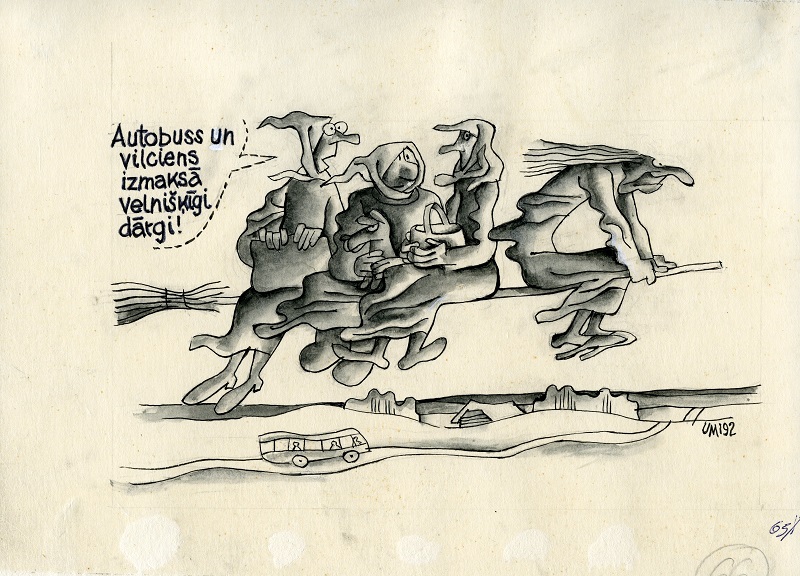 Autobuss un
vilciens
izmaksā
velnišķīgi
dārgi!
UM192
65/